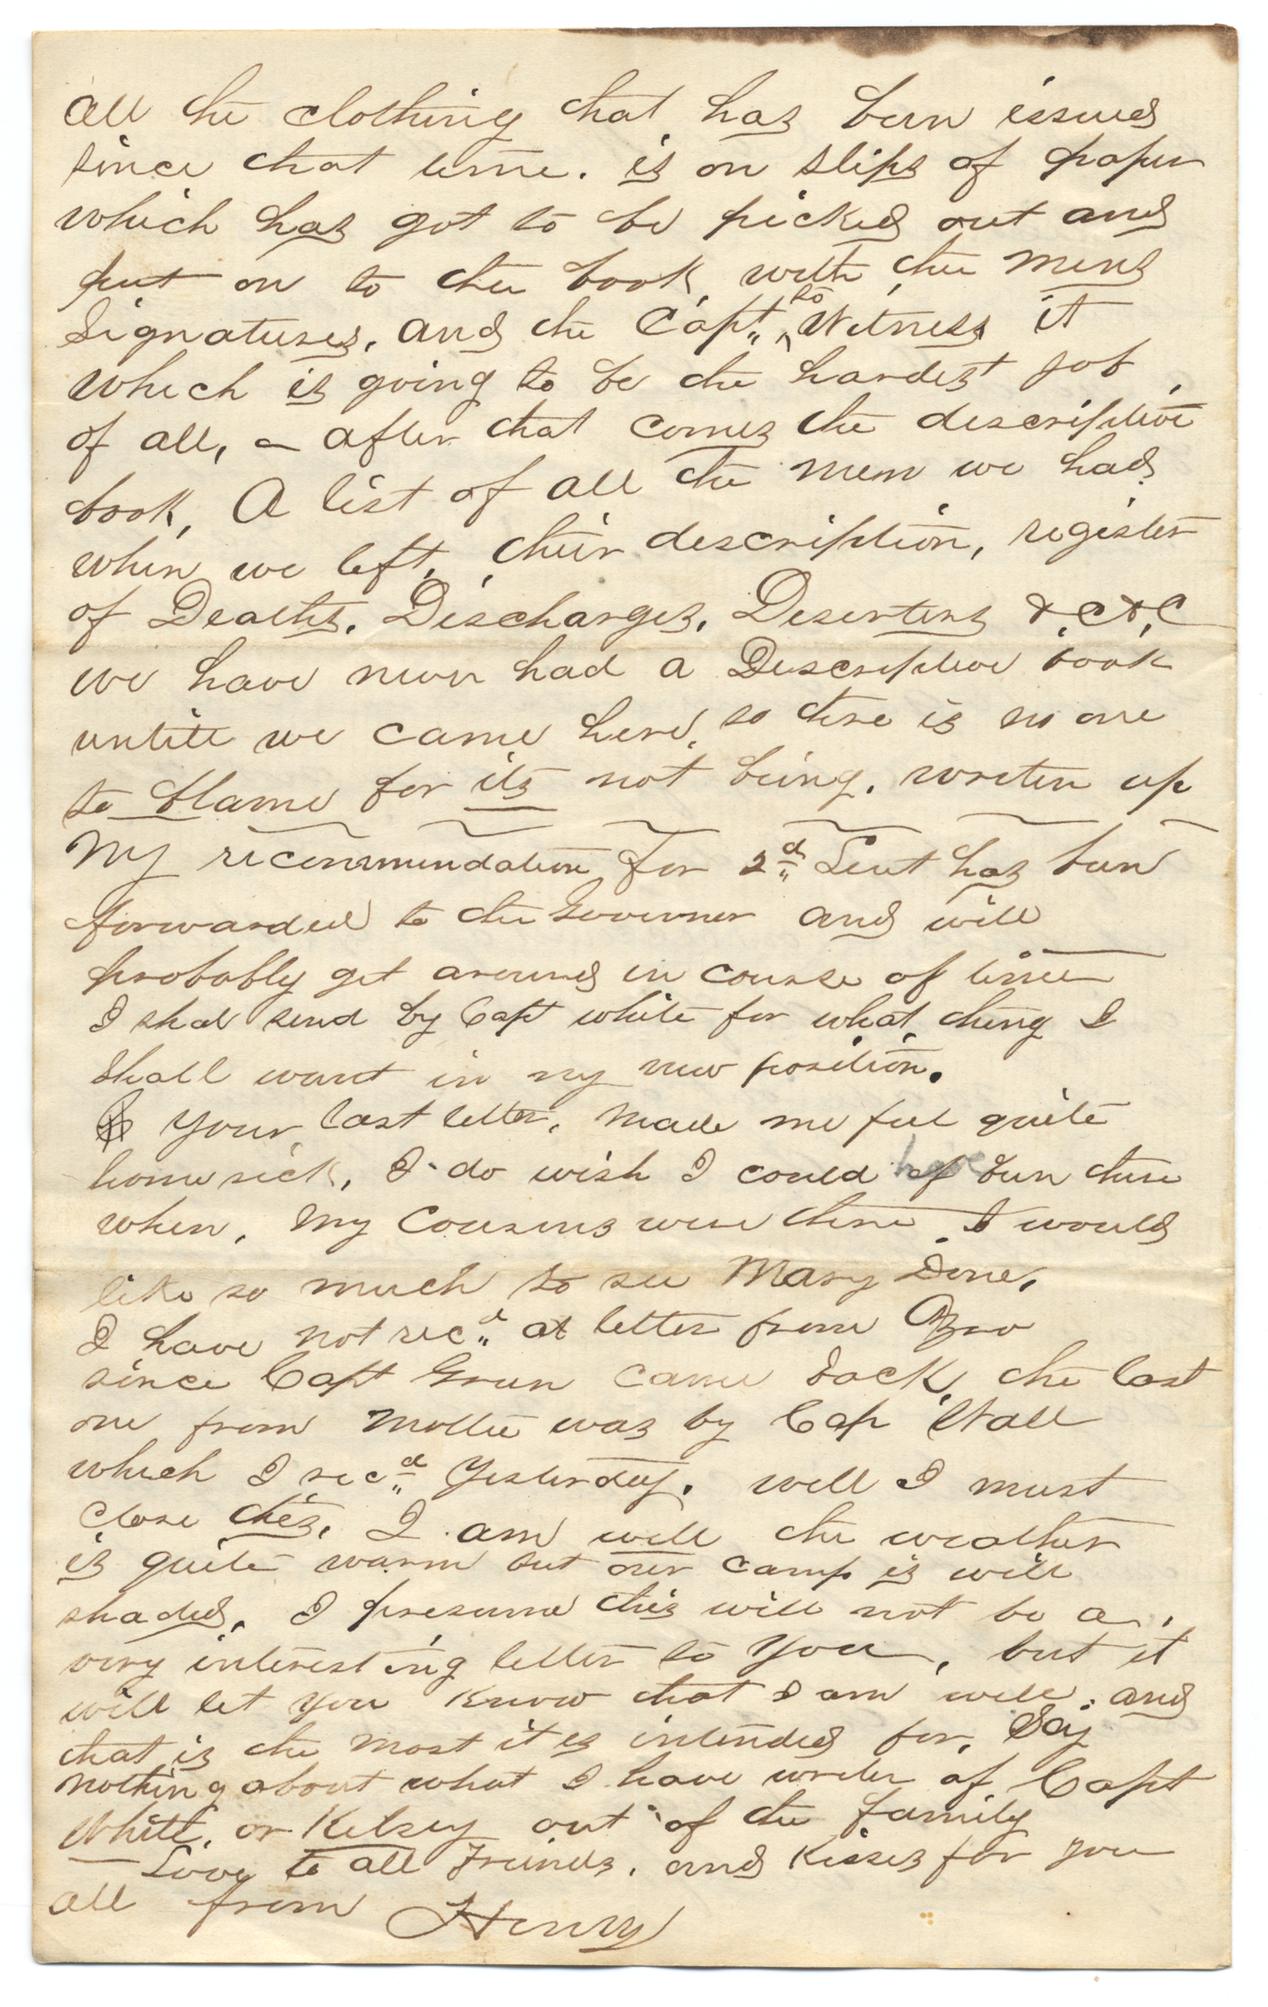 all the clothing that has been issued
since that time. is on slips of paper
which has got to be picked out and
put on to the book, with the mens
Signatures, and the Capt. to Witness it
which is going to be the hardest job
of all, - after that comes the descriptive
book, A list of all the men we had
when we left, their description, register
of Deaths, Discharges, Deserters &c &c
we have never had a Descriptive book
untill we came here, so there is no one
to blame for its not being, writen up
My recommendation for 2d Leut has been
forwarded to the Governer and will
probably get around in course of time
I shal send by Capt white for what thing I
shall want in my new position.
Your last letter, made me feel quite
homesick, I do wish I could have been there
when, My Cousins were there I would
like so much to see Mary Done,
I have not recd at letter from
since Capt Green came back, the last
one from Mollie was by Cap Stall
which I recd Yesterday. well I must
close this, I am well the weather
is quite warm but our camp is well
shaded, I presume this will not be a
very interesting letter to You, but it
will let you know that I am well, and
that is the most it is intended for, Say
nothing about what I have writen of Capt
White, or Kelsey out of the family
Love to all Friends, and Kisses for you
all from Henry